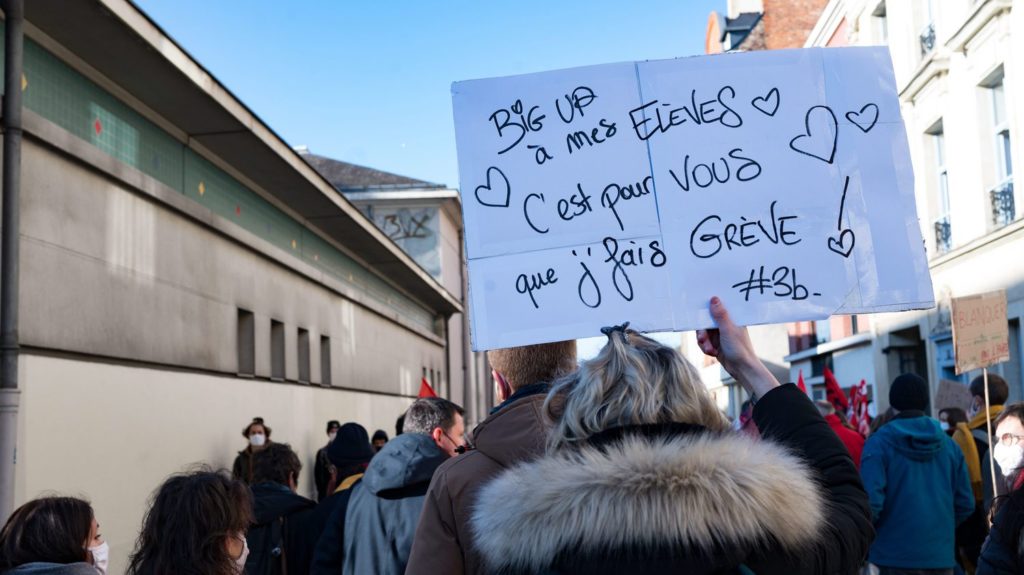 BIG UP
à mes ELÈVES
C'est pour VOUS
que j'fais GRÈVE !
#3b.
BLANQUER